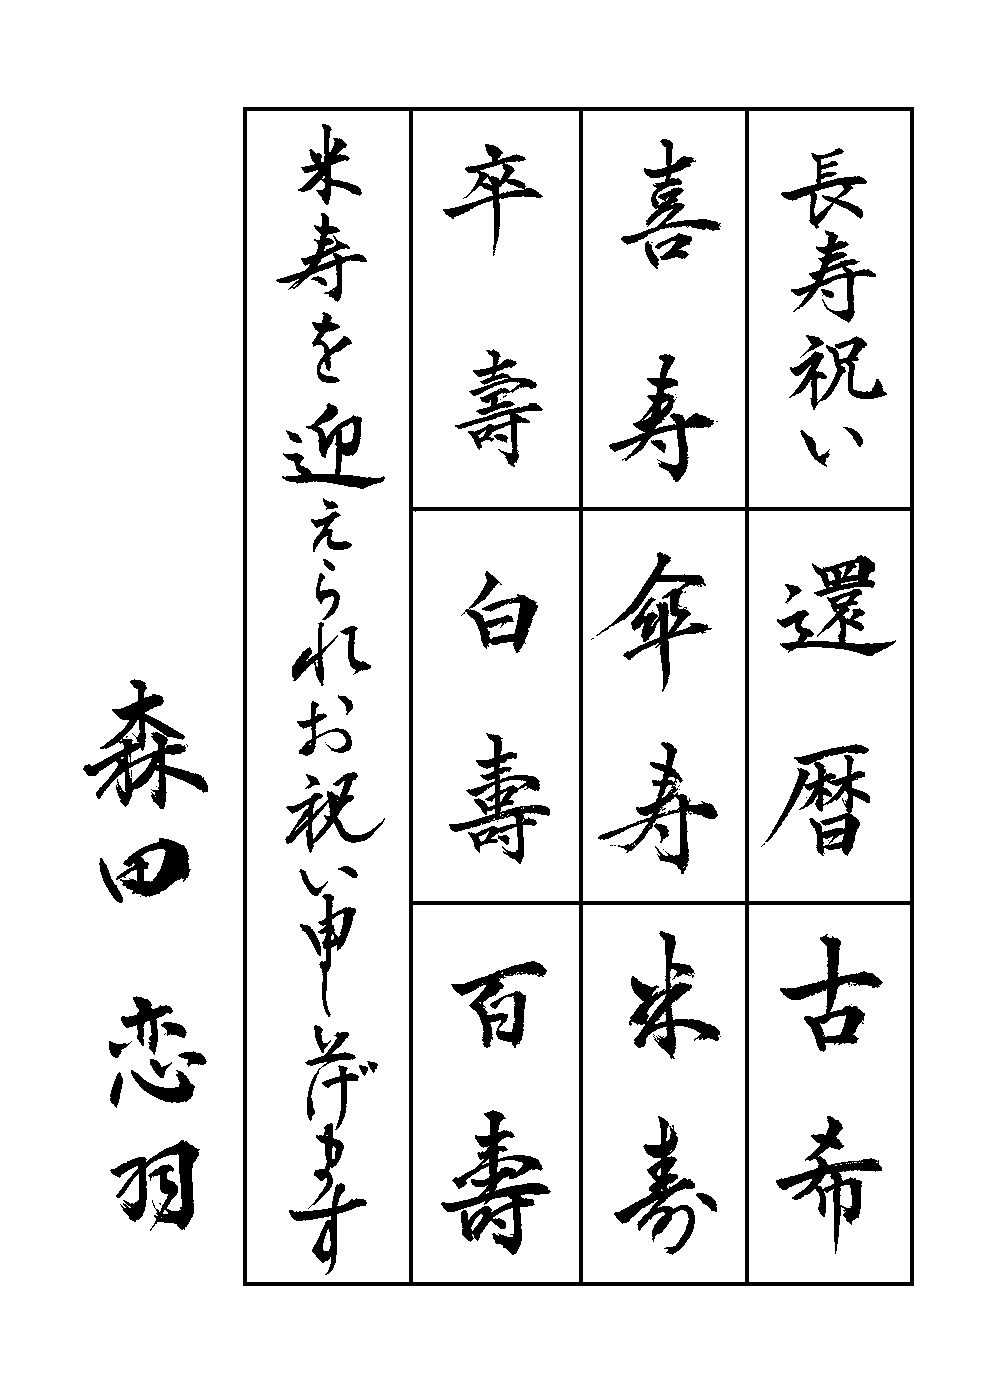 長寿祝い
還暦
古希
喜寿
傘寿
米寿
卒壽
白壽
百壽
米寿を迎えられお祝い申し上げます
森田 恋羽